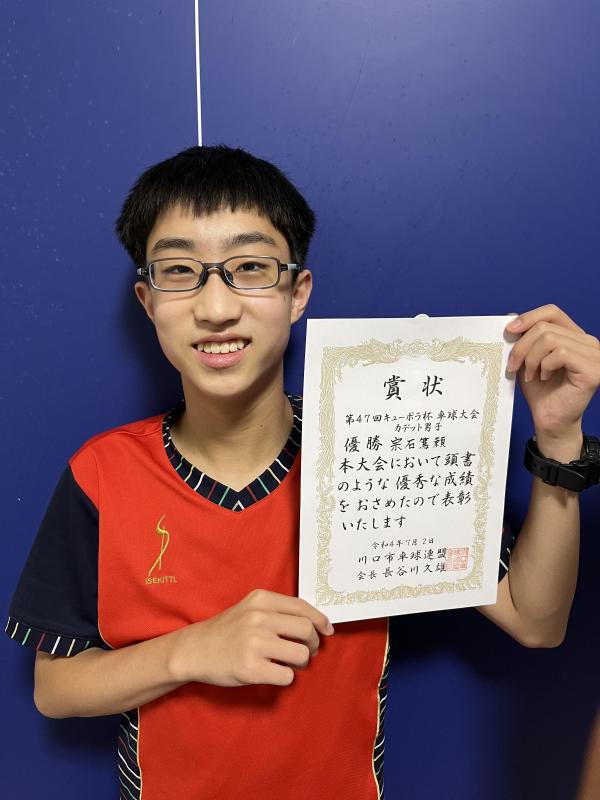 賞状
第47回キューポラ杯 卓球大会
カデット男子
優勝 宗石篤頼
本大会において頭書
のような優秀な成績
を おさめたので表彰
いたします
令和4年7月2日
川口市卓球連盟
会長 長谷川久雄
ISEKITTL